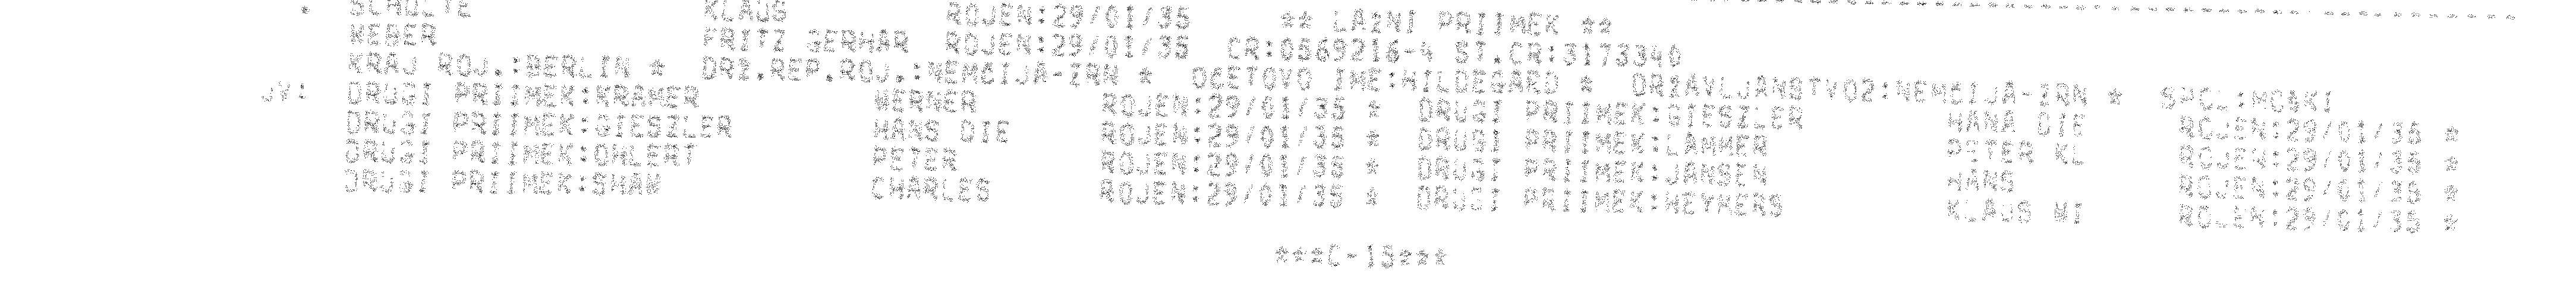 . SCHULTE KLAUS ROJEN:29/01/35 ** LAZNI PRIIMEK **
WEBER FRITZ GERHAR ROJEN:29/01/35 CR:0569216-4 ST.CR:3173340
KRAJ ROJ.:BERLIN * DRZ.REP.ROJ.:NEMCIJA-ZRN * OCETOVO IME:HILDEGARD * DRZAVLJANSTVO2:NEMCIJA-ZRN * SPOL:MOSKI
JV: DRUGI PRIIMEK:KRAMER WERNER ROJEN:29/01/35 * DRUGI PRIIMEK:GIESZLER HANA DIE ROJEN:29/01/35 *
DRUGI PRIIMEK:GIESZLER HANS DIE ROJEN:29/01/35 * DRUGI PRIIMEK:LAMMER PITER KL ROJEN:29/01/35 *
DRUGI PRIIMEK:OHLERT PETER ROJEN:29/01/35 * DRUGI PRIIMEK:JANSEN HANS ROJEN:29/01/35 *
DRUGI PRIIMEK:SHAW CHARLES ROJEN:29/01/35 * DRUGI PRIIMEK:WEYMERS KLAUS WI ROJEN:29/01/35 *
***C-15***